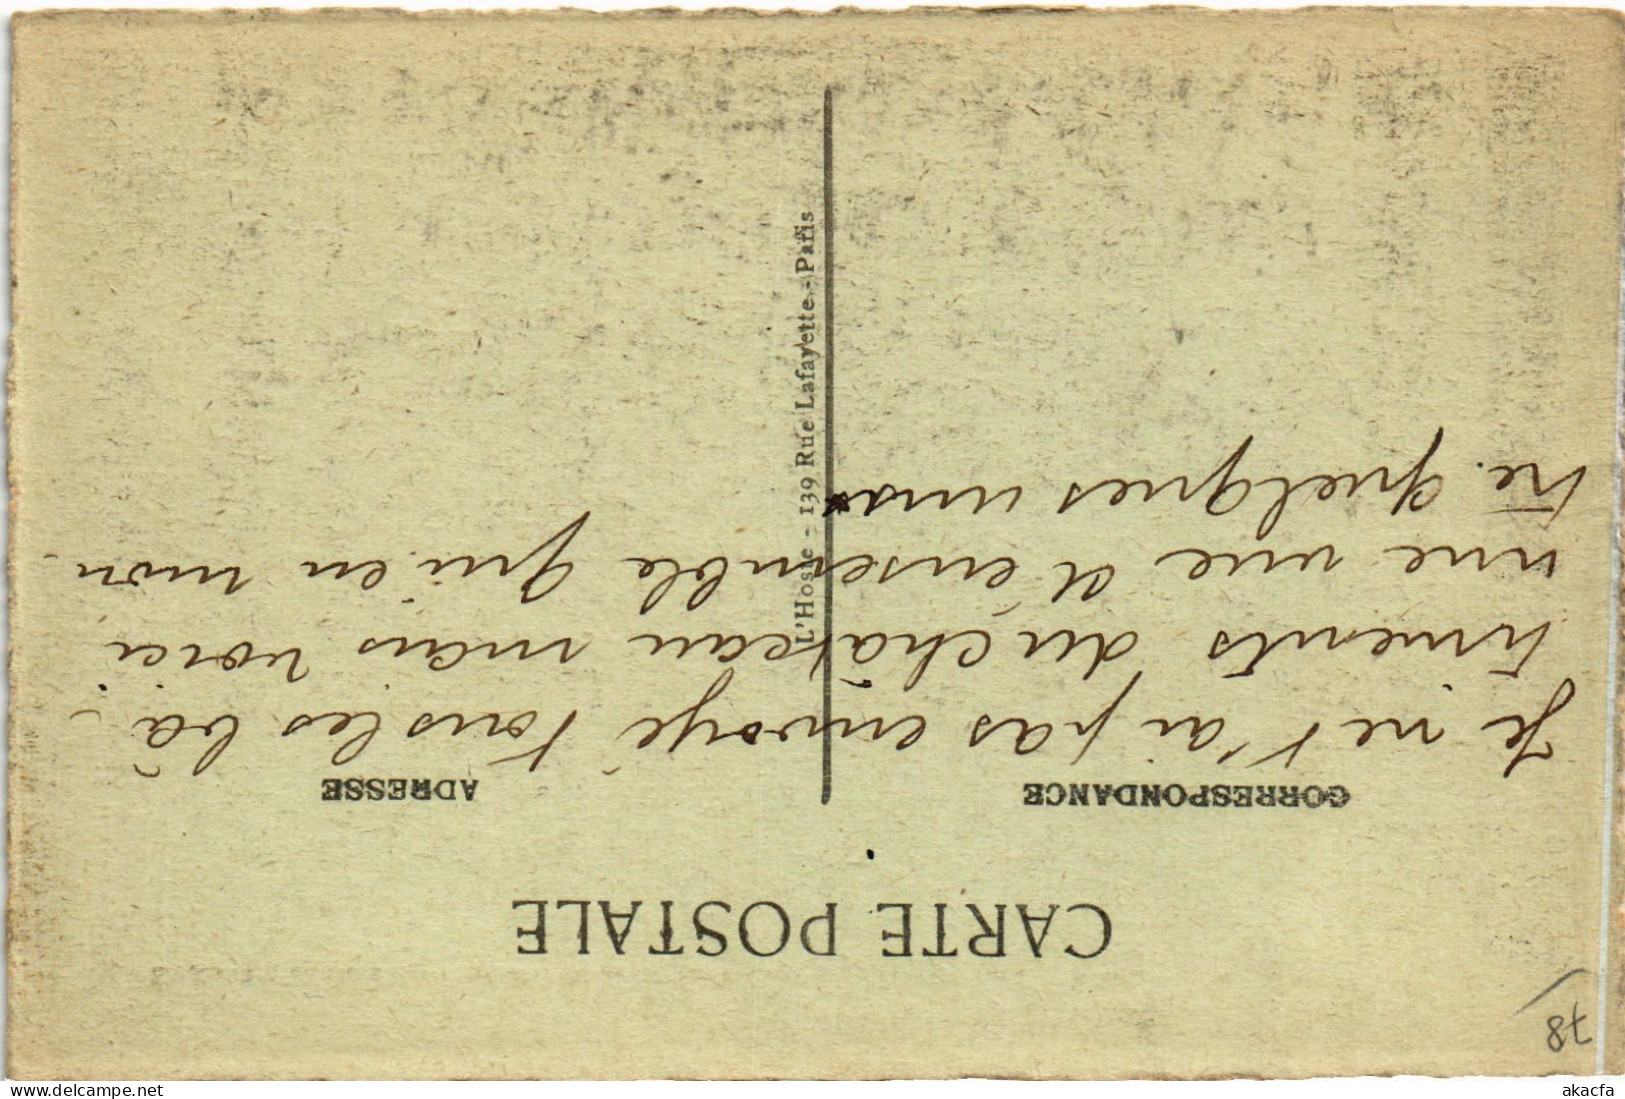 78
CARTE POSTALE
CORRESPONDANCE
ADRESSE
Je ne t'ai pas envoyé tous les bâ-
timents du château mais voici
une vue d'ensemble qui en mon-
tre quelques uns
L'Hoste - 139 Rue Lafayette - Paris
akacfa